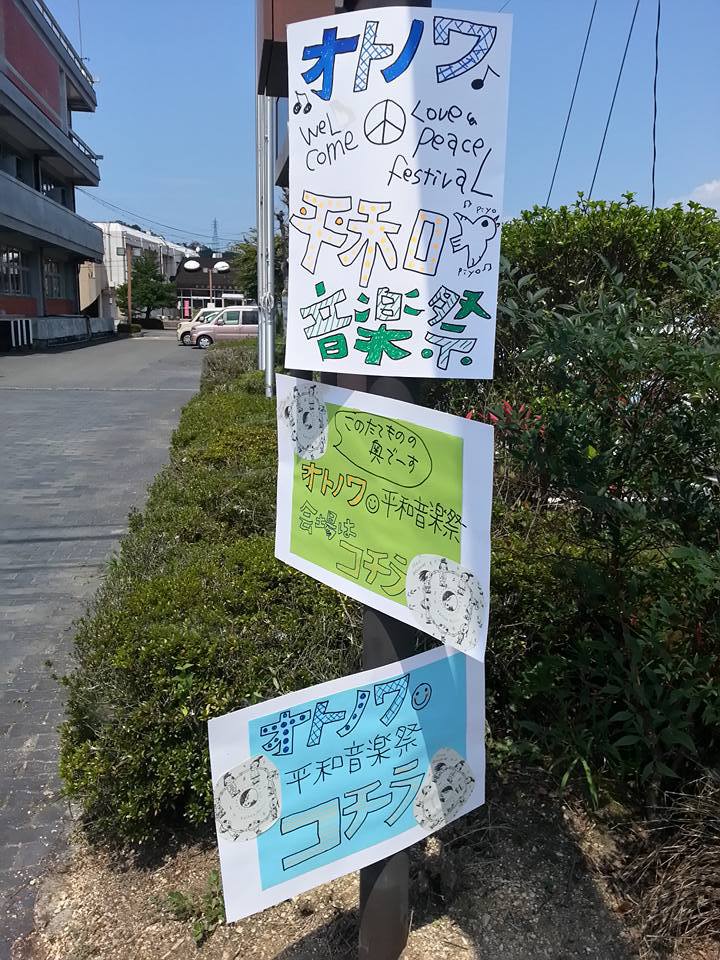 オトノワ
Welcome
Love &
peace
festival
平和
piyo
piyo
音楽祭
このたてものの
奥でーす
オトノワ平和音楽祭
会場は
コチラ
オトノワ
平和音楽祭
コチーラ